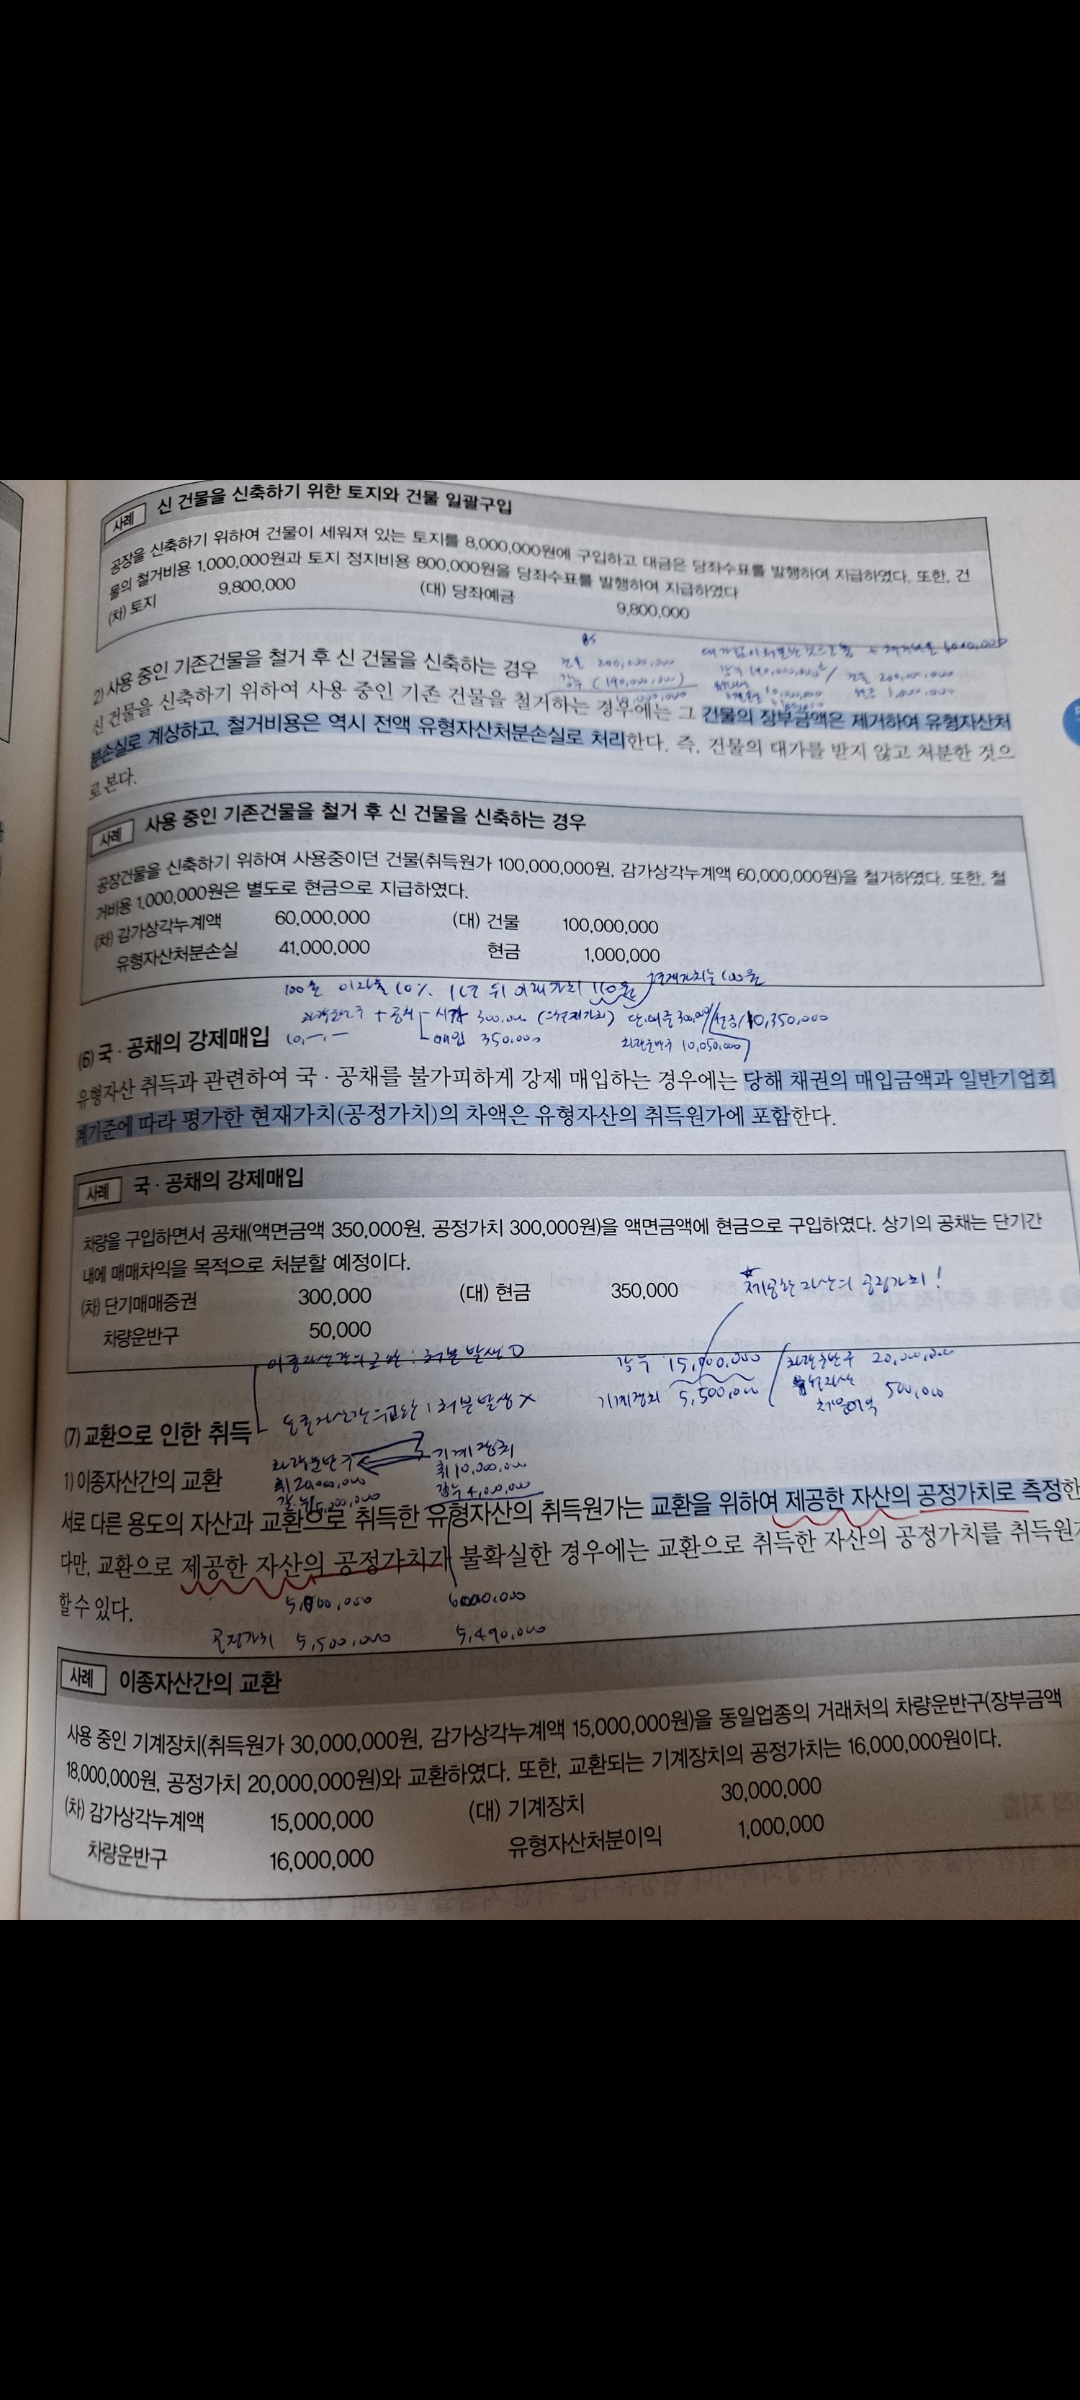 사례 신 건물을 신축하기 위한 토지와 건물 일괄구입
공장을 신축하기 위하여 건물이 세워져 있는 토지를 8,000,000원에 구입하고 대금은 당좌수표를 발행하여 지급하였다. 또한, 건
물의 철거비용 1,000,000원과 토지 정지비용 800,000원을 당좌수표를 발행하여 지급하였다
(차) 토지 9,800,000 (대) 당좌예금 9,800,000
BS
건물 200,000,000
감누 (190,000,000)
2) 사용 중인 기존건물을 철거 후 신 건물을 신축하는 경우
신 건물을 신축하기 위하여 사용 중인 기존 건물을 철거하는 경우에는 그 건물의 장부금액은 제거하여 유형자산처
분손실로 계상하고, 철거비용은 역시 전액 유형자산처분손실로 처리한다. 즉, 건물의 대가를 받지 않고 처분한 것으
로 본다.
사례 사용 중인 기존건물을 철거 후 신 건물을 신축하는 경우
공장건물을 신축하기 위하여 사용중이던 건물(취득원가 100,000,000원, 감가상각누계액 60,000,000원)을 철거하였다. 또한, 철
거비용 1,000,000원은 별도로 현금으로 지급하였다.
(차) 감가상각누계액 60,000,000 (대) 건물 100,000,000
유형자산처분손실 41,000,000 현금 1,000,000
100원 이자율 10% 1년 뒤 미래가치 110원 현재가치는 100원
차량운반구 + 공채 시가 300,000 (=현재가치)
매입 350,000
차량운반구 10,050,000
(6) 국·공채의 강제매입
유형자산 취득과 관련하여 국·공채를 불가피하게 강제 매입하는 경우에는 당해 채권의 매입금액과 일반기업회
계기준에 따라 평가한 현재가치(공정가치)의 차액은 유형자산의 취득원가에 포함한다.
사례 국·공채의 강제매입
차량을 구입하면서 공채(액면금액 350,000원, 공정가치 300,000원)을 액면금액에 현금으로 구입하였다. 상기의 공채는 단기간
내에 매매차익을 목적으로 처분할 예정이다.
(차) 단기매매증권 300,000 (대) 현금 350,000
차량운반구 50,000
제공한 자산의 공정가치!
이종자산간의 교환 : 처분 발생 O
감누 15,000,000 차량운반구 20,000,000
기계장치 5,500,000 유형자산
처분이익 500,000
동종자산간의 교환 : 처분 발생 X
(7) 교환으로 인한 취득
차량운반구 기계장치
취 20,000,000 취 10,000,000
감누 4,000,000
1) 이종자산간의 교환
서로 다른 용도의 자산과 교환으로 취득한 유형자산의 취득원가는 교환을 위하여 제공한 자산의 공정가치로 측정한
다만, 교환으로 제공한 자산의 공정가치가 불확실한 경우에는 교환으로 취득한 자산의 공정가치를 취득원가
할 수 있다.
공정가치 5,500,000 5,490,000
사례 이종자산간의 교환
사용 중인 기계장치(취득원가 30,000,000원, 감가상각누계액 15,000,000원)을 동일업종의 거래처의 차량운반구(장부금액
18,000,000원, 공정가치 20,000,000원)와 교환하였다. 또한, 교환되는 기계장치의 공정가치는 16,000,000원이다.
(차) 감가상각누계액 15,000,000 (대) 기계장치 30,000,000
차량운반구 16,000,000 유형자산처분이익 1,000,000